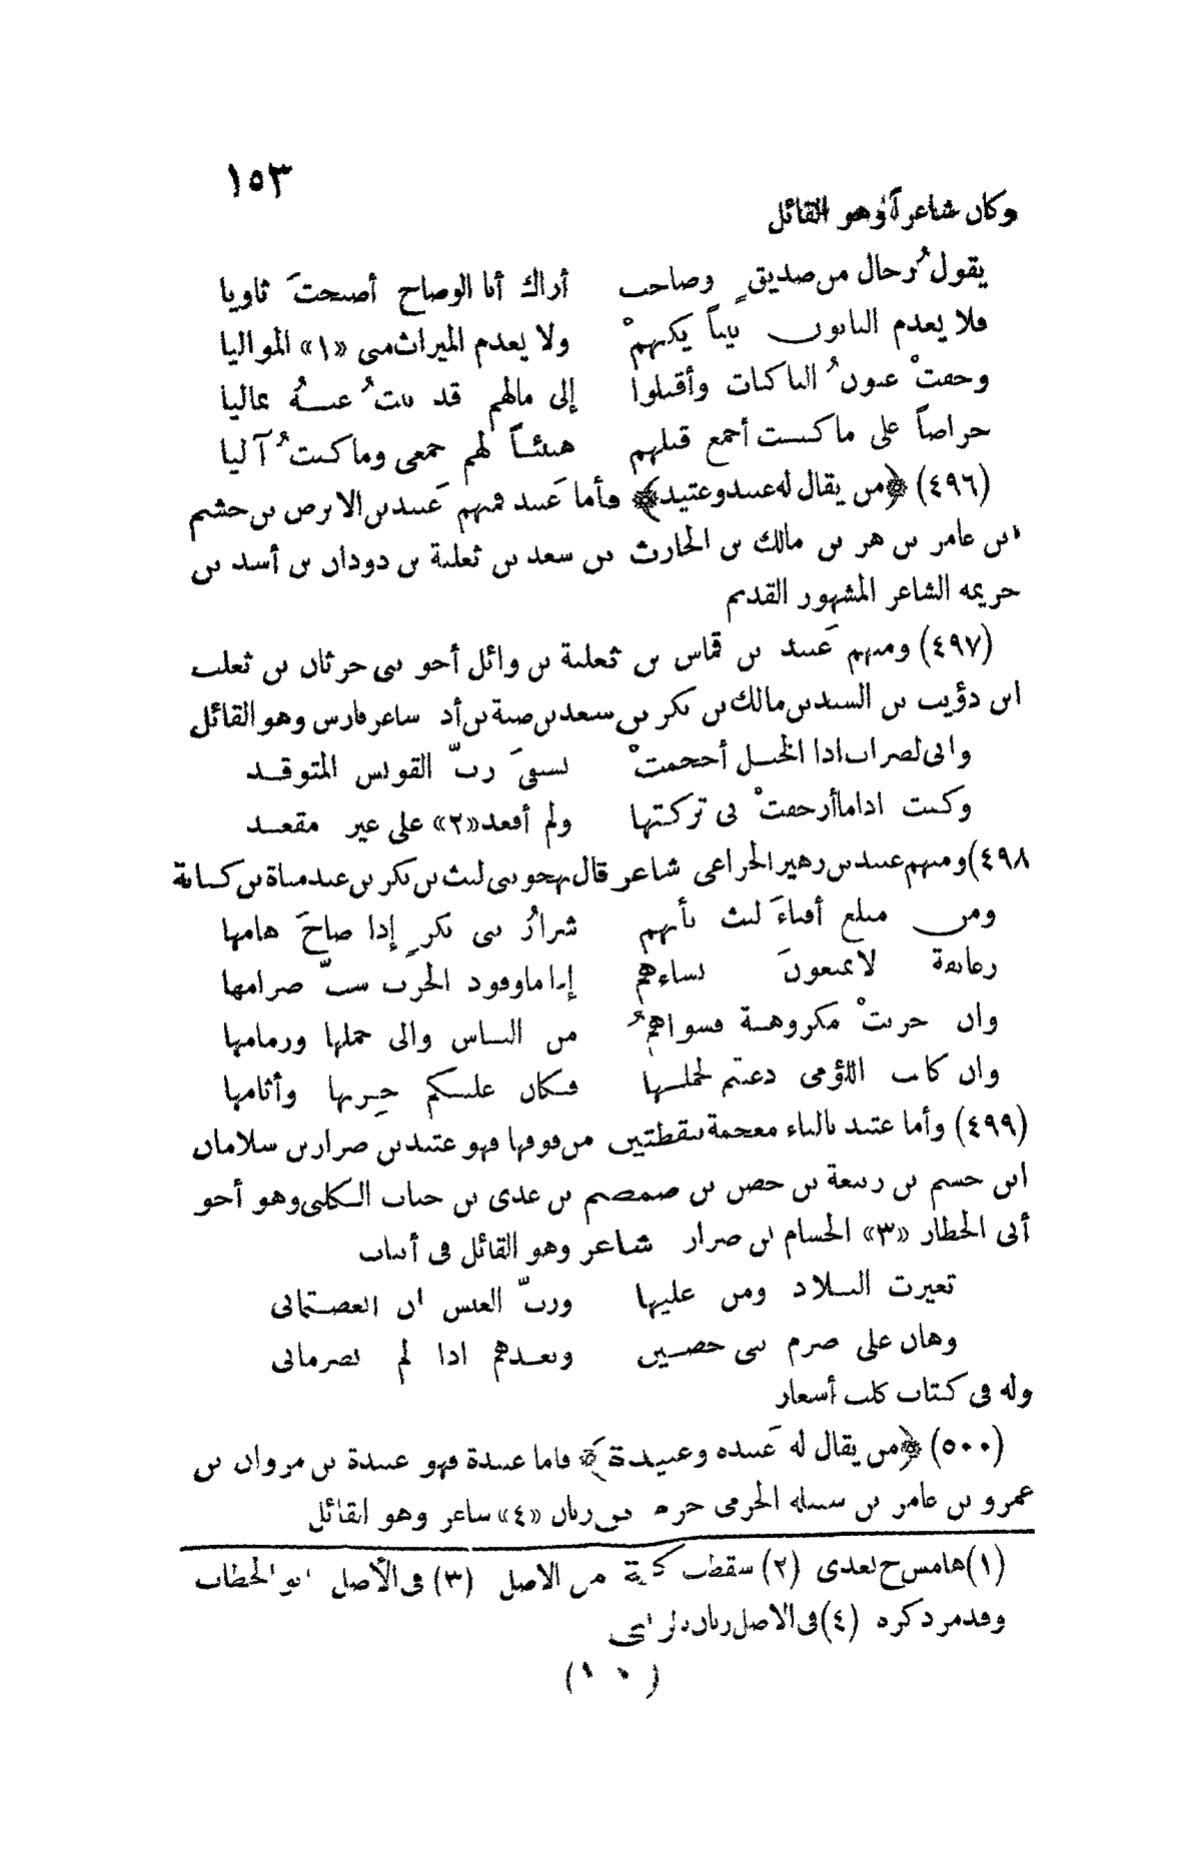 ١٥٣
وكان شاعراً وهو القائل
يقولُ رجال من صديقٍ وصاحب أراك أبا الوضاح أصبحتَ ثاويا
فلا يعدم البانون بيتاً يكنهمْ ولا يعدم الميراث مني «١» المواليا
وخفتْ عيونُ الباكيات وأقبلوا إلى مالهم قد بنتُ عنـهُ بماليا
حراصاً على ما كنت أجمع قبلهم هنيئـاً لهم جمعي وما كنتُ آليا
(٤٩٦) ﴿من يقال له عبيد وعتيد﴾ فأما عَبيد فمنهم عَبيد بن الابرص بن جشم
ابن عامر بن هر بن مالك بن الحارث بن سعد بن ثعلبة بن دودان بن أسد بن
خزيمة الشاعر المشهور القديم
(٤٩٧) ومنهم عَبيد بن قماس بن ثعلبة بن وائل أخو بني حرثان بن ثعلب
ابن دؤيب بن السيد بن مالك بن بكر بن سعد بن ضبة بن أد شاعر فارس وهو القائل
واني لضراب اذا الخيـل أحجمتْ بسيفيَ ربّ القونس المتوقـد
وكنت اذا ما أرجفتْ بي تركتها ولم أقعد «٢» على غير مقعـد
٤٩٨) ومنهم عبيد بن زهير الخزاعي شاعر قال يهجو بني ليث بن بكر بن عبد مناة بن كنانة
ومن مبلغ أفناءَ ليث بأنهم شرارُ بني بكرٍ إذا صاحَ هامها
زعانفة لا يمنعونَ نساءهم إذا ما وقود الحرب شبّ ضرامها
وان حربتْ مكروهـة فسواهمُ من النـاس والى حملها وزمامها
وان كانت اللؤمى دعيتم لحملـها فـكان عليـكم خـزيها وأثامها
(٤٩٩) وأما عتيد بالتاء معجمة بنقطتين من فوقها فهو عتيد بن ضرار بن سلامان
ابن جشم بن ربيعة بن حصن بن ضمضم بن عدي بن جناب الـكلبي وهو أخو
أبي الخطار «٣» الحسام بن ضرار شاعر وهو القائل في أبيات
تغيرت البـلاد ومن عليها ورثّ العيش ان العصـتماني
وهان علي صرم بني حصـين وبعـدهم اذا لم يصرماني
وله في كتاب كلب أشعار
(٥٠٠) ﴿من يقال له عَبيده وعبيـدة﴾ فاما عبيدة فهو عبيدة بن مروان بن
عمرو بن عامر بن سيلة الجرمي جرم بني ربان «٤» شاعر وهو القائل
(١) هامش ح لعدي (٢) سقطت كلمة من الاصل (٣) في الأصل ابو الخطاب
وقد مر ذكره (٤) في الاصل ربان بالزاي
(٢٠)